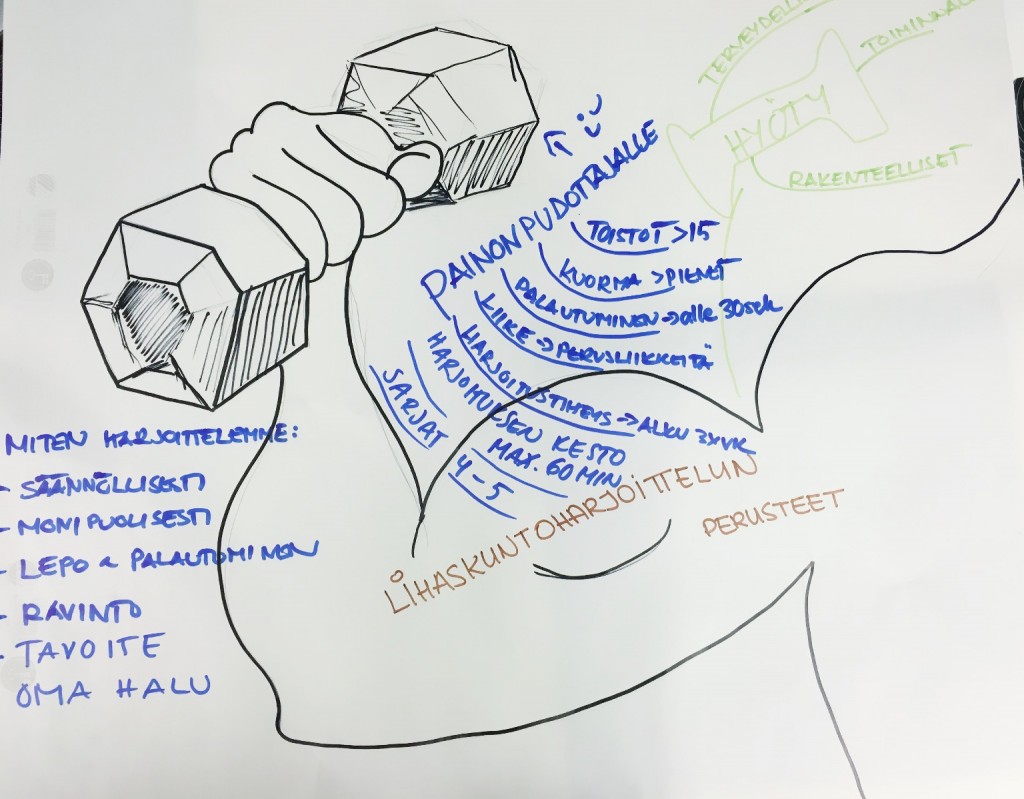 TERVEYDELLI
TOIMINNAL
HYÖTY
RAKENTEELLISET
:)
PAINONPUDOTTAJALLE
TOISTOT >15
KUORMA > PIENET
PALAUTUMINEN → alle 30sek
LIIKE → PERUSLIIKKEITÄ
HARJOITUSTIHEYS → ALKU 3XVK
HARJOITUKSEN KESTO
MAX. 60 MIN
SARJAT
4-5
LIHASKUNTOHARJOITTELUN
PERUSTEET
MITEN HARJOITTELEMME:
- SÄÄNNÖLLISESTI
- MONIPUOLISESTI
- LEPO & PALAUTUMINEN
- RAVINTO
- TAVOITE
OMA HALU